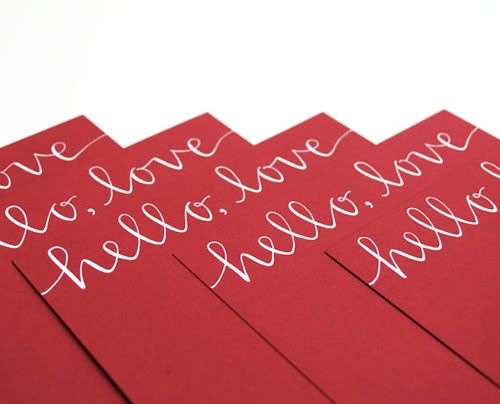 love
llo, love
hello, love
hello, love
hello